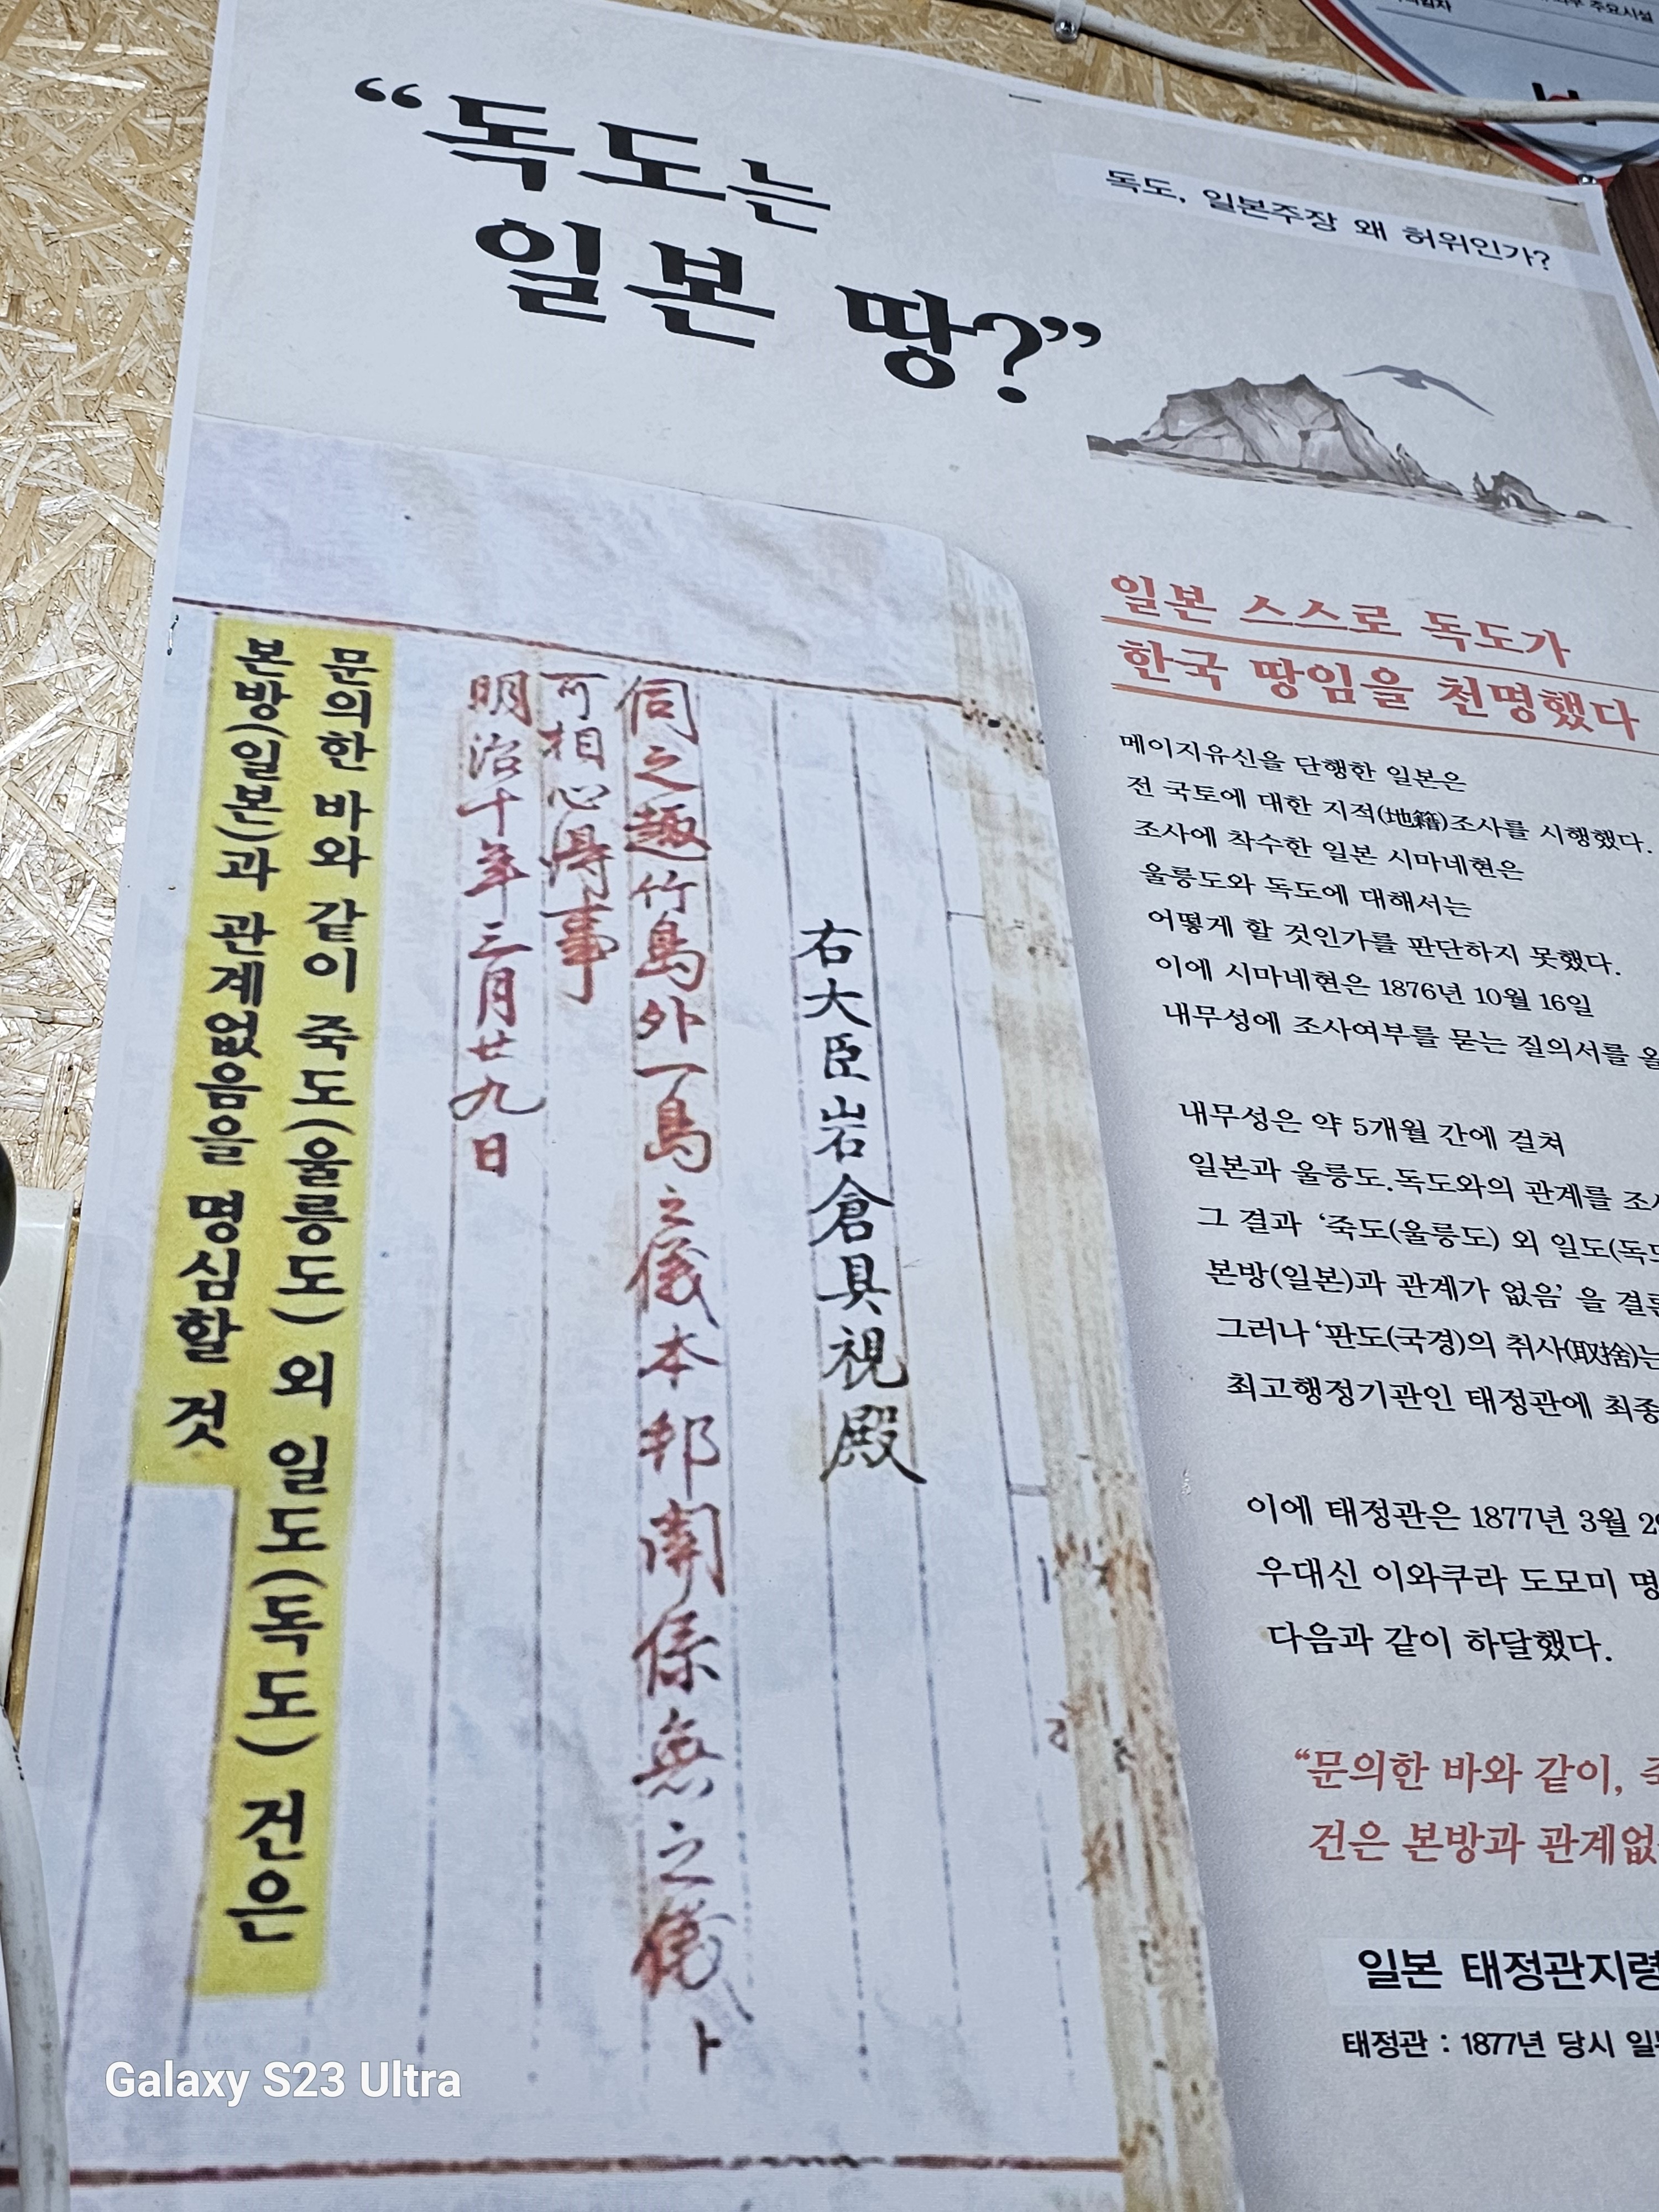 주요시설
“독도는
일본 땅?”
독도, 일본주장 왜 허위인가?
일본 스스로 독도가
한국 땅임을 천명했다
메이지유신을 단행한 일본은
전 국토에 대한 지적(地籍)조사를 시행했다.
조사에 착수한 일본 시마네현은
울릉도와 독도에 대해서는
어떻게 할 것인가를 판단하지 못했다.
이에 시마네현은 1876년 10월 16일
내무성에 조사여부를 묻는 질의서를 올
내무성은 약 5개월 간에 걸쳐
일본과 울릉도.독도와의 관계를 조사
그 결과 ‘죽도(울릉도) 외 일도(독도
본방(일본)과 관계가 없음’ 을 결론
그러나 ‘판도(국경)의 취사(取捨)는
최고행정기관인 태정관에 최종
이에 태정관은 1877년 3월 29
우대신 이와쿠라 도모미 명
다음과 같이 하달했다.
“문의한 바와 같이, 죽
건은 본방과 관계없
일본 태정관지령
태정관 : 1877년 당시 일본
右大臣岩倉具視殿
伺之趣竹島外一島之儀本邦関係無之儀ト
可相心得事
明治十年三月廿九日
문의한 바와 같이 죽도(울릉도) 외 일도(독도) 건은
본방(일본)과 관계없음을 명심할 것
Galaxy S23 Ultra